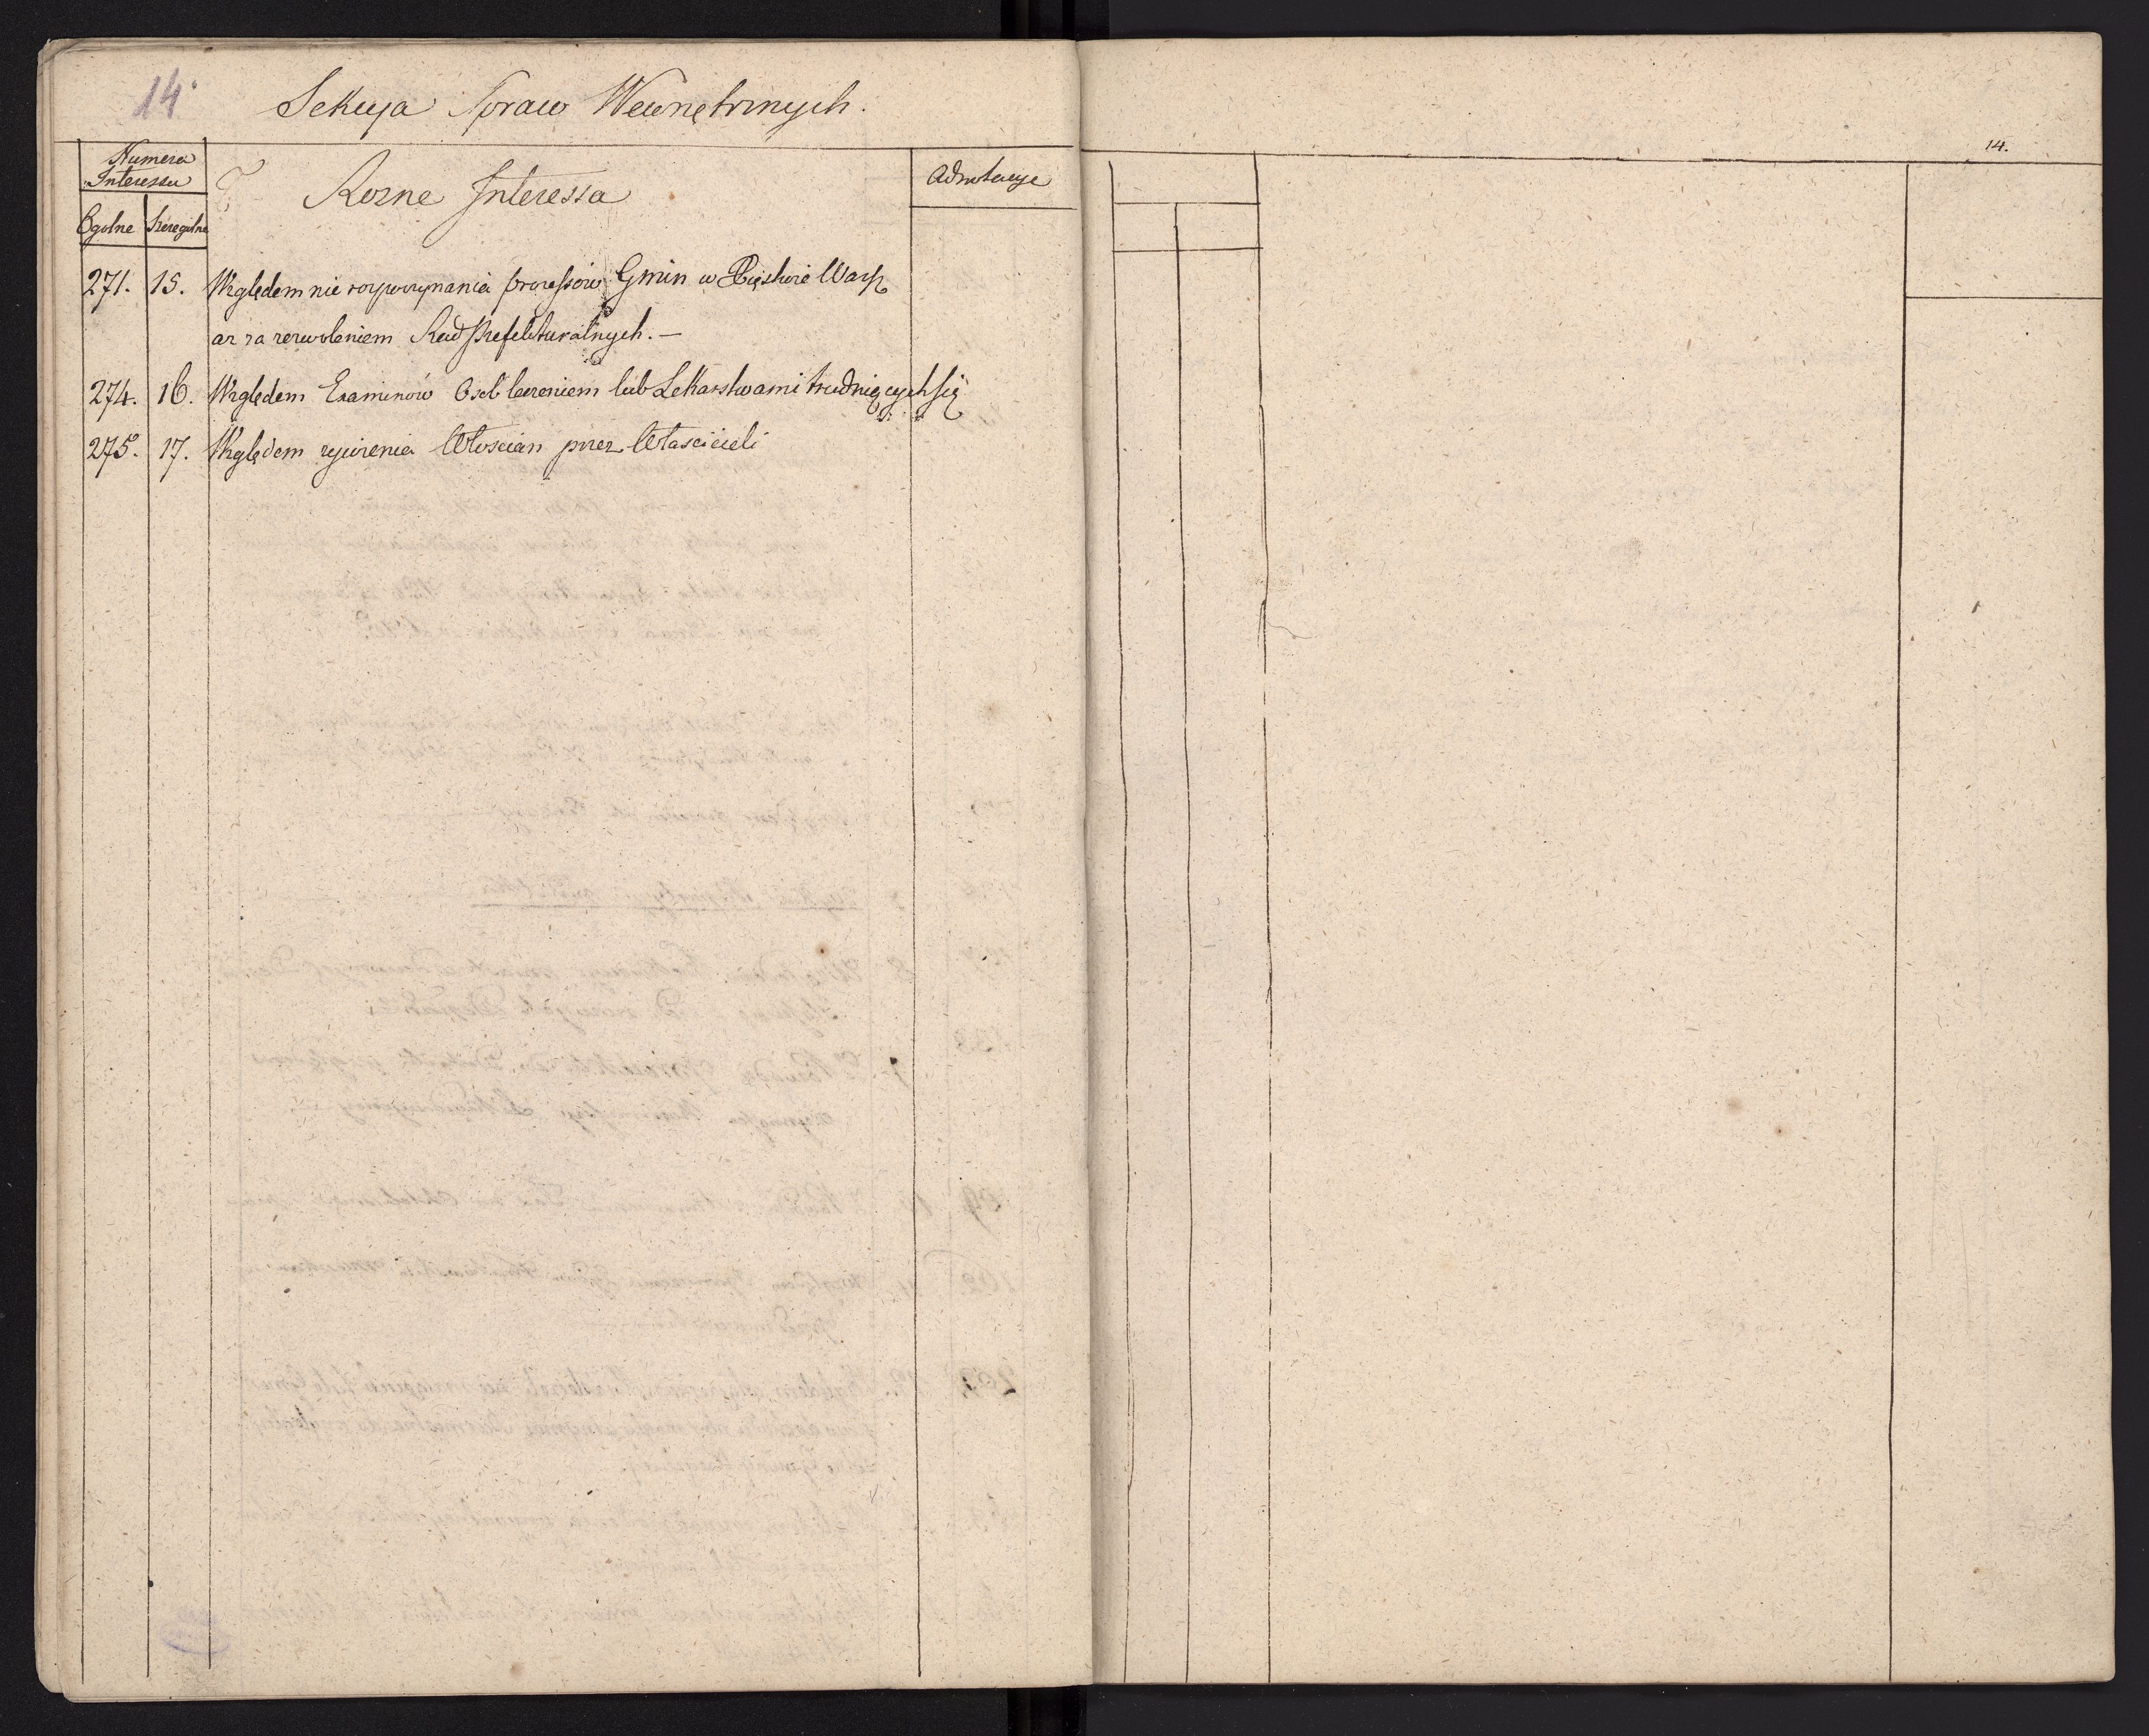 14
Sekcya Spraw Wewnętrznych.
Numera
Interessu
Rozne Interessa
Adnotacye
Ogolne Szczegulne
271. 15. Względem nie rozpoczynania processow Gmin w Xięstwie Warsz
az za zezwoleniem Rad Prefekturalnych. —
274. 16. Względem Examinow Osob leczeniem lub Lekarstwami trudniących się
275. 17. Względem życzenia Włoscian przez Właścicieli
14.